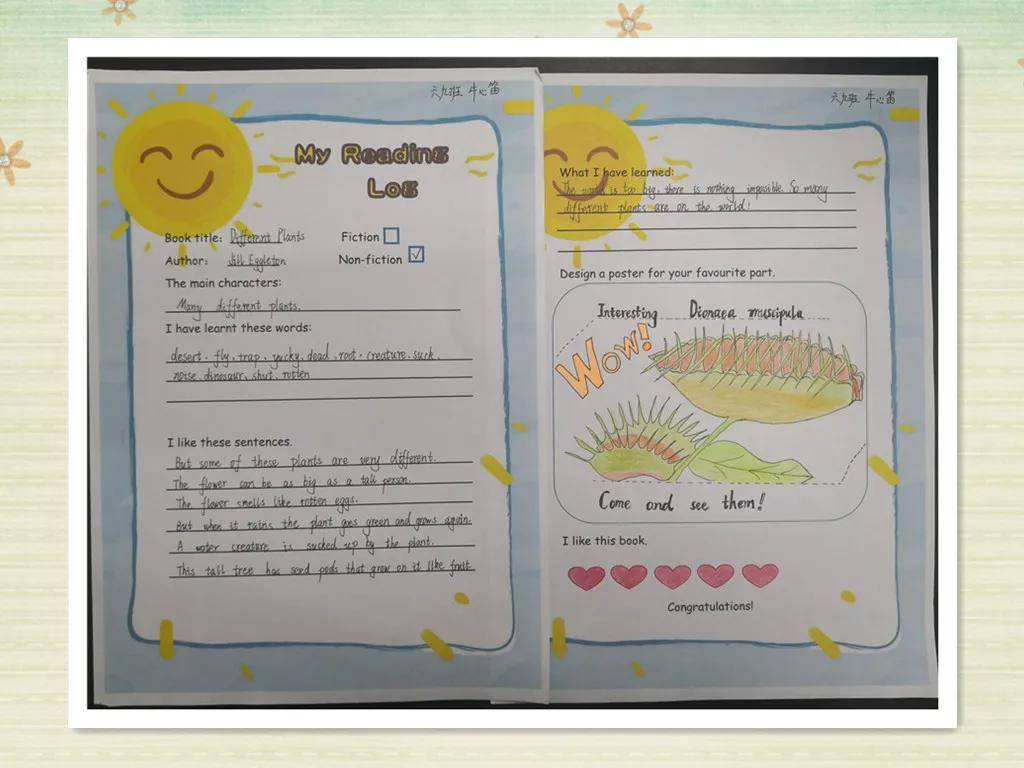 六九班 牛心笛
My Reading
Log
Book title: Different Plants Fiction
Author: Jill Eggleton Non-fiction ✓
The main characters:
Many different plants.
I have learnt these words:
desert, fly, trap, yucky, dead, root, creature, suck,
noise, dinosaur, shut, rotten
I like these sentences.
But some of these plants are very different.
The flower can be as big as a tall person.
The flower smells like rotten eggs.
But when it rains the plant goes green and grows again.
A water creature is sucked up by the plant.
This tall tree has seed pods that grow on it like fruit.
六九班 牛心笛
What I have learned:
The world is too big, there is nothing imposible. So many
different plants are on the world!
Design a poster for your favourite part.
Interesting Dionaea muscipula
Wow!
Come and see them!
I like this book.
Congratulations!